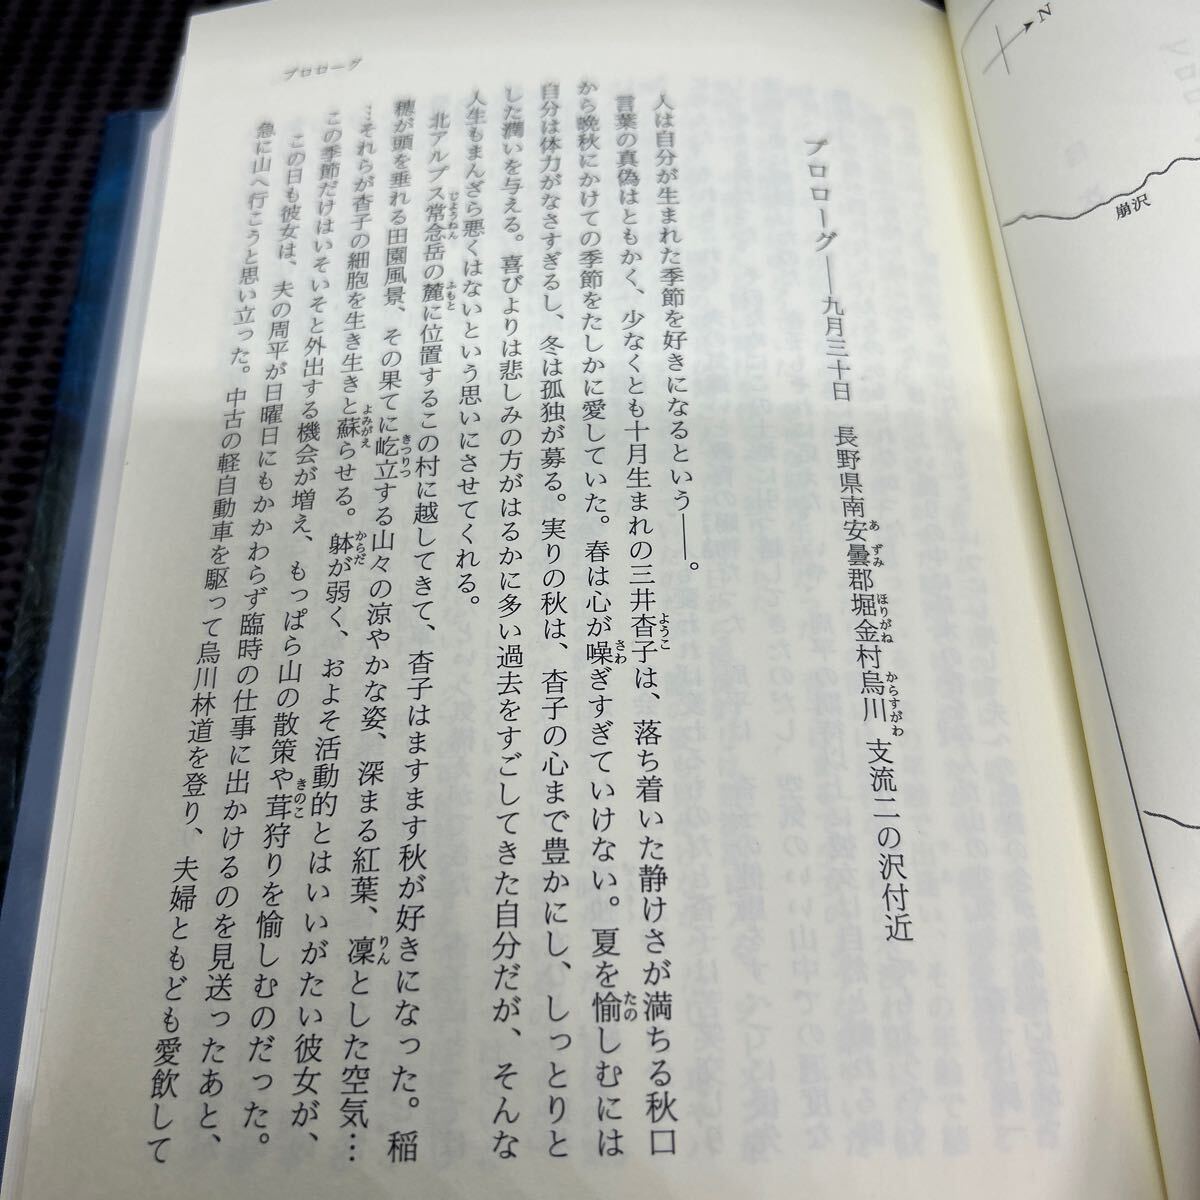 N
崩沢
プロローグ――九月三十日　長野県南安曇郡堀金村烏川　支流二の沢付近
人は自分が生まれた季節を好きになるという――。
言葉の真偽はともかく、少なくとも十月生まれの三井杳子は、落ち着いた静けさが満ちる秋口
から晩秋にかけての季節をたしかに愛していた。春は心が噪ぎすぎていけない。夏を愉しむには
自分は体力がなさすぎるし、冬は孤独が募る。実りの秋は、杳子の心まで豊かにし、しっとりと
した潤いを与える。喜びよりは悲しみの方がはるかに多い過去をすごしてきた自分だが、そんな
人生もまんざら悪くはないという思いにさせてくれる。
北アルプス常念岳の麓に位置するこの村に越してきて、杳子はますます秋が好きになった。稲
穂が頭を垂れる田園風景、その果てに屹立する山々の涼やかな姿、深まる紅葉、凜とした空気…
…それらが杳子の細胞を生き生きと蘇らせる。躰が弱く、およそ活動的とはいいがたい彼女が、
この季節だけはいそいそと外出する機会が増え、もっぱら山の散策や茸狩りを愉しむのだった。
この日も彼女は、夫の周平が日曜日にもかかわらず臨時の仕事に出かけるのを見送ったあと、
急に山へ行こうと思い立った。中古の軽自動車を駆って烏川林道を登り、夫婦ともども愛飲して
プロローグ